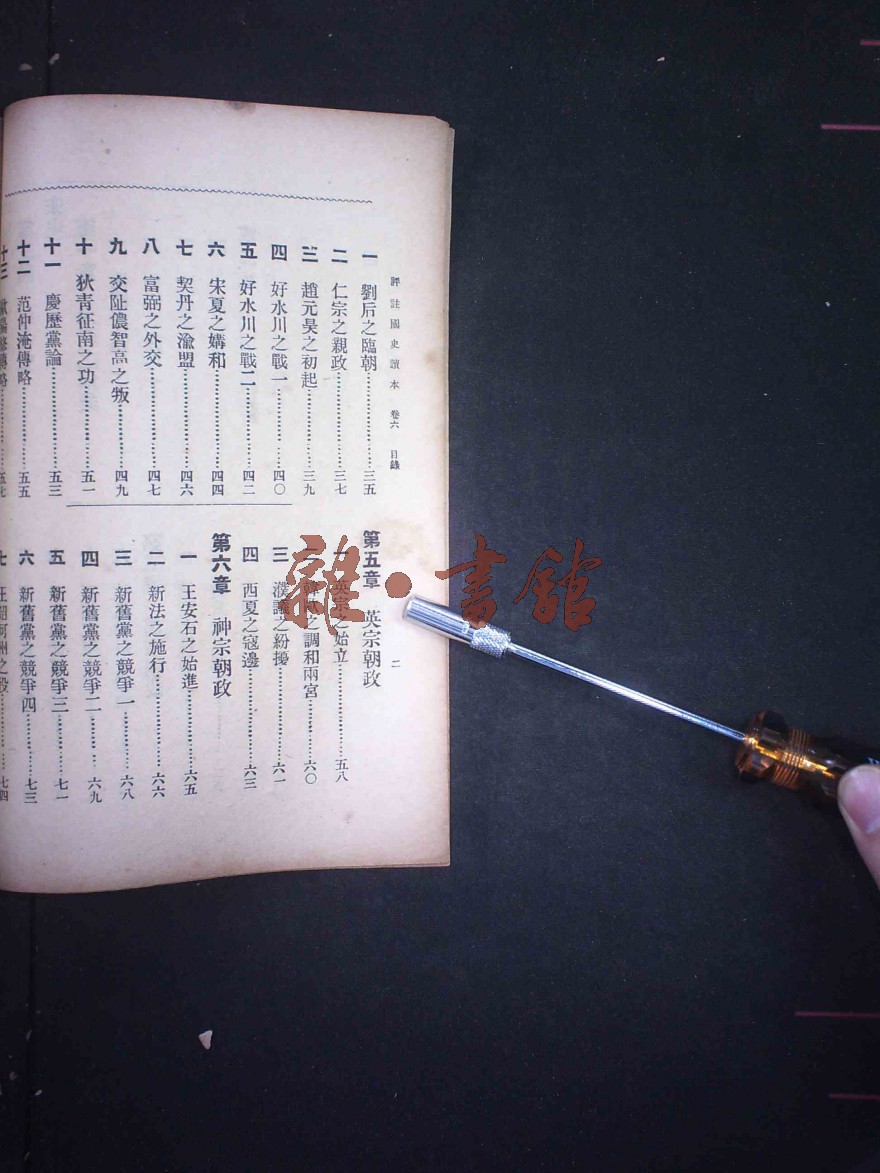 評註國史讀本 卷六 目錄 二
一 劉后之臨朝……三五
二 仁宗之親政……三七
三 趙元昊之初起……三九
四 好水川之戰一……四〇
五 好水川之戰二……四二
六 宋夏之媾和……四四
七 契丹之渝盟……四六
八 富弼之外交……四七
九 交阯儂智高之叛……四九
十 狄青征南之功……五一
十一 慶歷黨論……五三
十二 范仲淹傳略……五五
十三
第五章 英宗朝政
一 英宗之始立……五八
二 之調和兩宮……六〇
三 濮議之紛擾……六一
四 西夏之寇邊……六三
第六章 神宗朝政
一 王安石之始進……六五
二 新法之施行……六六
三 新舊黨之競爭一……六八
四 新舊黨之競爭二……六九
五 新舊黨之競爭三……七一
六 新舊黨之競爭四……七三
七 之役……七四
雜·書館